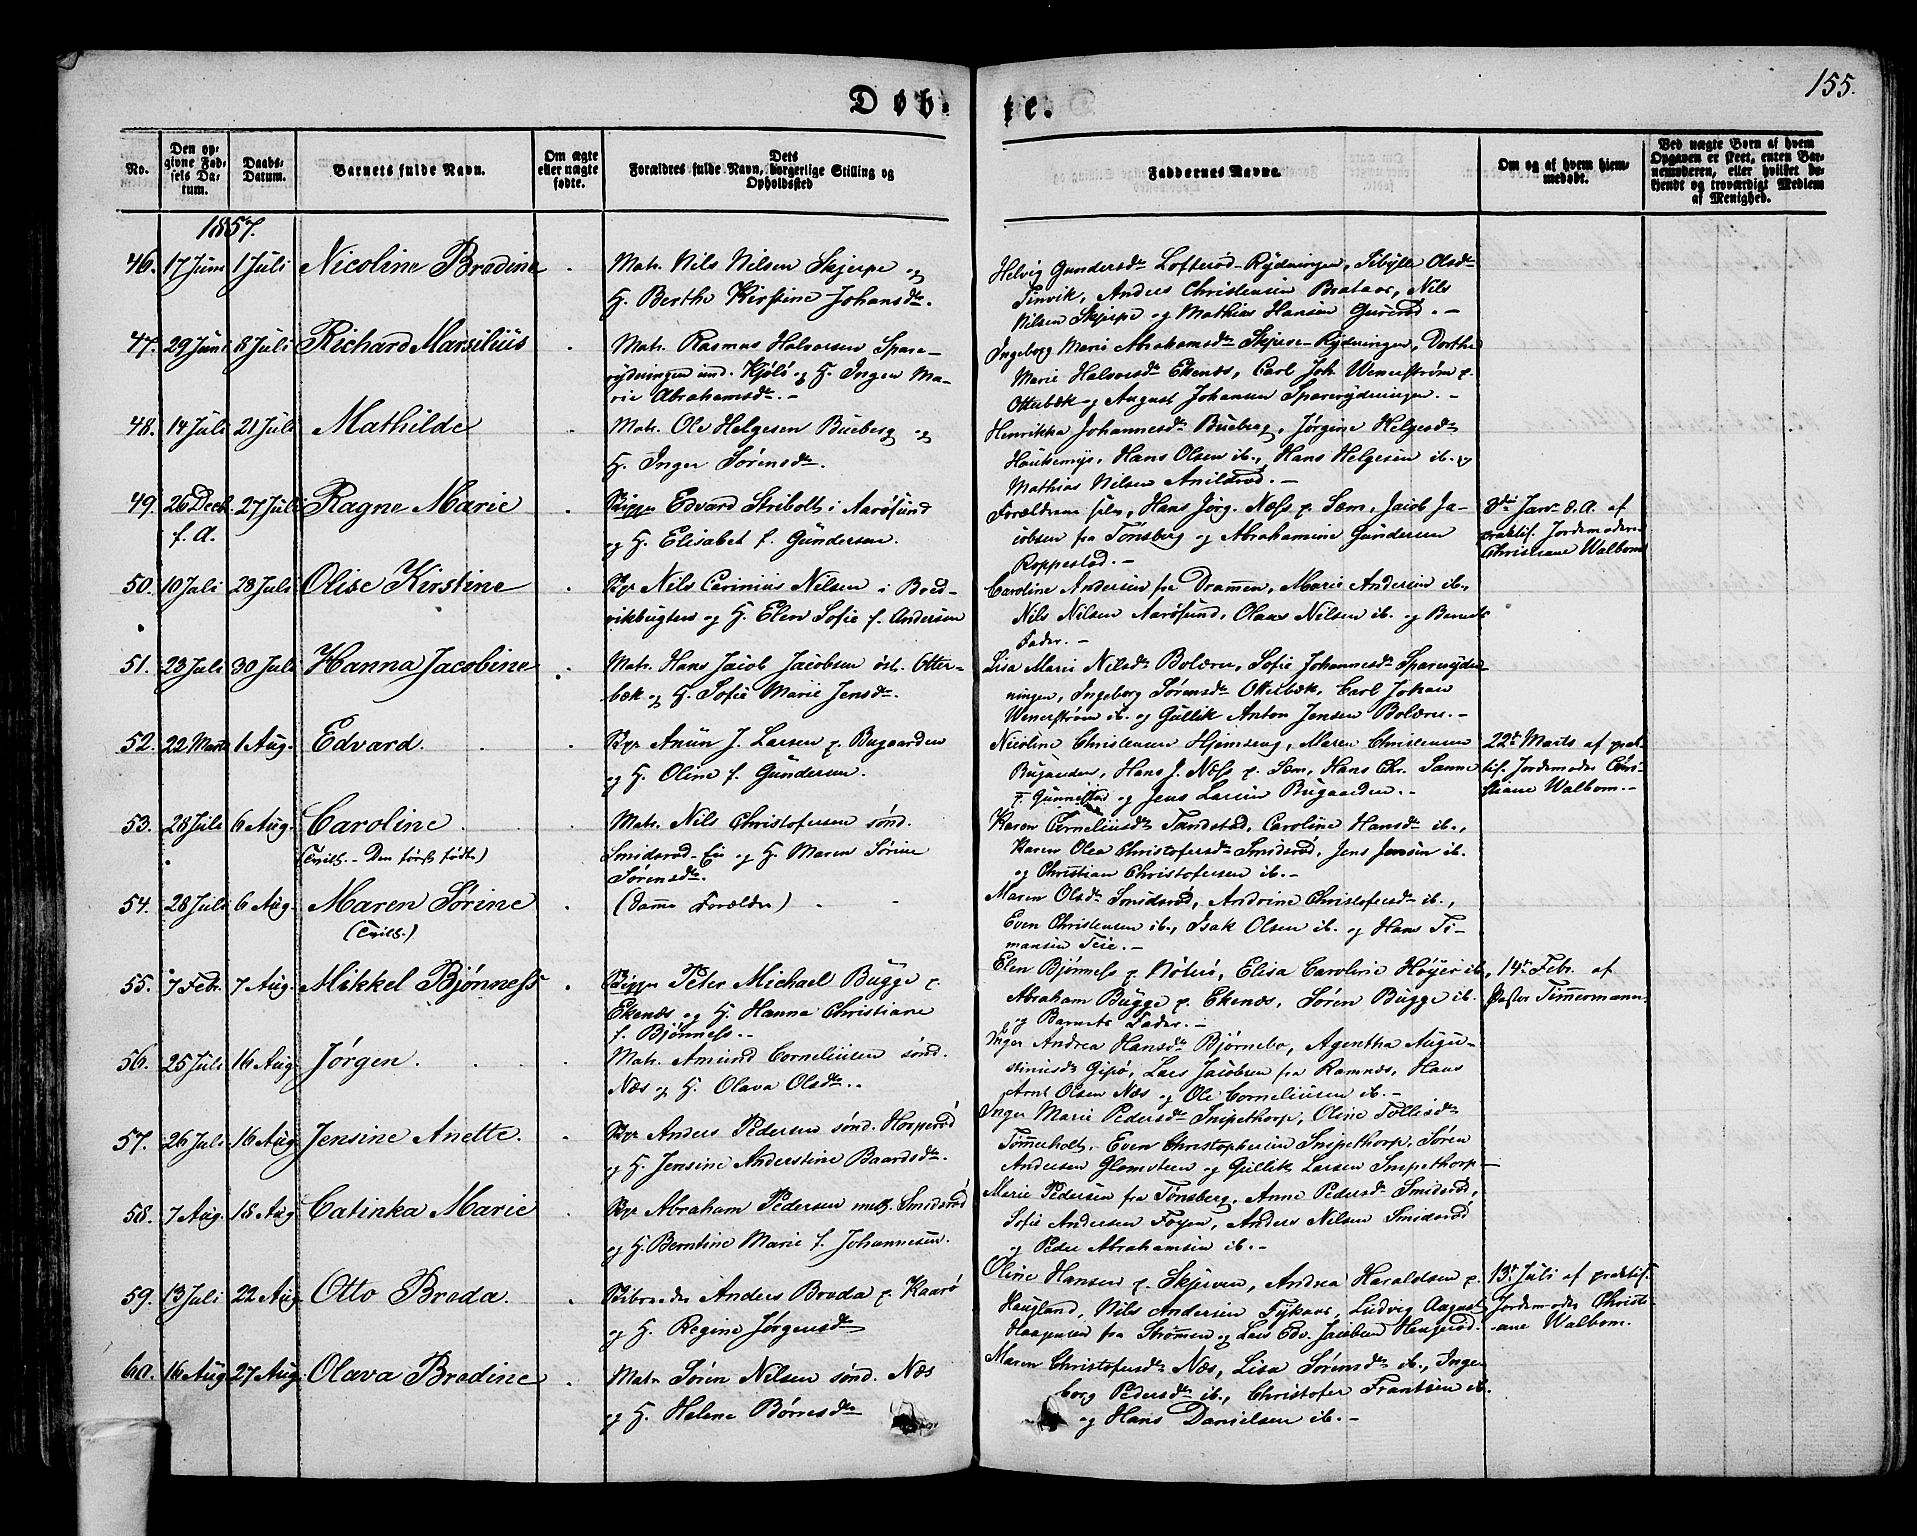 155.
Døb- te.
No.
Den opgivne Fødsels Datum.
Daabs-Datum.
Barnets fulde Navn.
Om ægte eller uægte fødte.
Dets Forældres fulde Navn, borgerlige Stilling og Opholdssted
Faddernes Navne.
Om og af hvem hjemmedøbt.
Ved uægte Børn af hvem Opgaven er skeet, enten Barnemoderen, eller hvilket bekjendt og troværdigt Medlem af Menighed.
1857.
46. 17 Juni 1 Juli Nicoline Bredine
Matr. Nils Nilsen Skjerpe og
H. Berthe Kirstine Johansdr.
Helvig Gundersdr Lofterød-Rydningen, Sibylle Olsdr
Sinvik, Anders Christensen Brataas, Nils
Nilsen Skjerpe og Mathias Hansen Guverød. -
47. 29 Juni 8 Juli Richard Marsilius
Matr. Rasmus Halvorsen Spare-
rydningen und. Kjøle og H. Inger Ma-
rie Abrahamsdr. -
Ingeborg Marie Abrahamsdr Skjerse-Rydningen, Dorthe
Marie Halvorsdr Ekenæs, Carl Joh. Wenerstrøm p.
Otterbæk og August Johansen Sparerydningen. -
48. 14 Juli 21 Juli Mathilde
Matr. Ole Helgesen Bueberg og
H. Inger Sørensdr.
Henrikka Johannesdr Bueberg, Jørgine Helgesdr
Haukemyr, Hans Olsen ib., Hans Helgesen ib. og
Mathias Nilsen Anildrød. -
49. 26 Decb. f. A. 27 Juli Ragne Marie
Skipper Edvard Stribolt i Aarøsund
og H. Elisabet f. Gundersen.
Forældrene selv, Hans Jørg. Næss p. Sem, Jacob Ja-
cobsen fra Tønsberg og Abrahamine Gundersen
Roppestad. -
3die Janr d. A. af
praktis. Jordemoderen
Christiane Walbom
50. 10 Juli 28 Juli Olise Kirstine
Bgr Nils Carinius Nilsen i Bred-
vikbugten og H. Elen Sofie f. Andersen
Caroline Andersen fra Drammen, Marie Andersen ib.,
Nils Nilsen Aarøsund, Olaus Nilsen ib. og Barnets
Fader. -
51. 23 Juli 30 Juli Hanna Jacobine
Matr. Hans Jacob Jacobsen øst. Otter-
bæk og H. Sofie Marie Jensdr.
Lisa Marie Nilsdr Bolærne, Sofie Johannesdr Spareryd-
ningen, Ingeborg Sørensdr Otterbæk, Carl Johan
Wenerstrøm ib. og Gullik Anton Jensen Bolærne. -
52. 22 Marts 1 Aug. Edvard.
Bgr Anun J. Larsen p. Bugaarden
og H. Oline f. Gundersen.
Nicoline Christensen Hjemseng, Maren Christensen
Bugarden, Hans J. Næss p. Sem, Hans Chr. Sanne
p. Gunnestad og Jens Larsen Bugaarden. -
22de Marts af prak-
tis. Jordemoder Chris-
tiane Walbom. -
53. 28 Juli 6 Aug. Caroline.
(Tvill. - Den først fødte)
Matr. Nils Christofersen sønd.
Smidsrød-Eie og H. Maren Sørine
Sørensdr.
Karen Corneliusdr Tandstad, Caroline Hansdr ib.,
Karen Olea Christofersdr Smidsrød, Jens Jensen ib.
og Christian Christofersen ib. -
54. 28 Juli 6 Aug. Maren Sørine
(Tvill.)
(Samme Forældre)
Maren Olsdr Smidsrød, Andrine Christofersdr ib.,
Even Christensen ib., Isak Olsen ib. og Hans Ti-
mansen Teie. -
55. 7 Febr. 7 Aug. Mikkel Bjønness
Skipper Peter Michael Bugge p.
Ekenæs og H. Hanna Christiane
f. Bjønness. -
Elen Bjønness p. Nøterø, Elisa Caroline Høyer ib.
Abraham Bugge p. Ekenæs, Søren Bugge ib.
og Barnets Fader. -
14de Febr. af
Pastor Timmermann.
56. 25 Juli 16 Aug. Jørgen.
Matr. Amund Corneliusen sønd.
Næs og H. Olava Olsdr. -
Inger Andrea Hansdr Bjørnebo, Agentha Augu-
stinusdr Gipø, Lars Jacobsen fra Ramnæs, Hans
Arnt Olsen Næs og Ole Corneliusen ib. -
57. 26 Juli 16 Aug. Jensine Anette.
Bgr Anders Pedersen sønd. Horperød
og H. Jensine Anderstine Baardsdr.
Inger Marie Pedersdr Snipethorp, Oline Tollesdr
Tømmerholt, Even Christophersen Snipethorp, Søren
Andersen Glomsteen og Gullik Larsen Snipethorp -
58. 7 Aug. 18 Aug. Catinka Marie
Bgr Abraham Pedersen mell. Smidsrød
og H. Berntine Marie f. Johannesen.
Marie Pedersen fra Tønsberg, Anne Pedersdr Smidsrød,
Sofie Andersen Foyen, Anders Nilsen Smidsrød
og Peder Abrahamsen ib. -
59. 13 Juli 22 Aug. Otto Breda.
Anders Breda p. Kaarø
og H. Regine Jørgensdr
Oline Hansen p. Skjerven, Andrea Haraldsen p.
Haugland, Nils Andersen Fykaas, Ludvig August
Haagensen fra Strømmen og Lars Edv. Jacobsen Haugerød.
13de Juli af praktis.
Jordemoder Christi-
ane Walbom.
60. 16 Aug. 27 Aug. Olava Bredine
Matr. Søren Nilsen sønd. Næs
og H. Helene Børresdr
Maren Christofersdr Næs, Lisa Sørensdr ib., Inge-
borg Pedersdr ib., Christofer Frantsen ib.
og Hans Danielsen ib. -